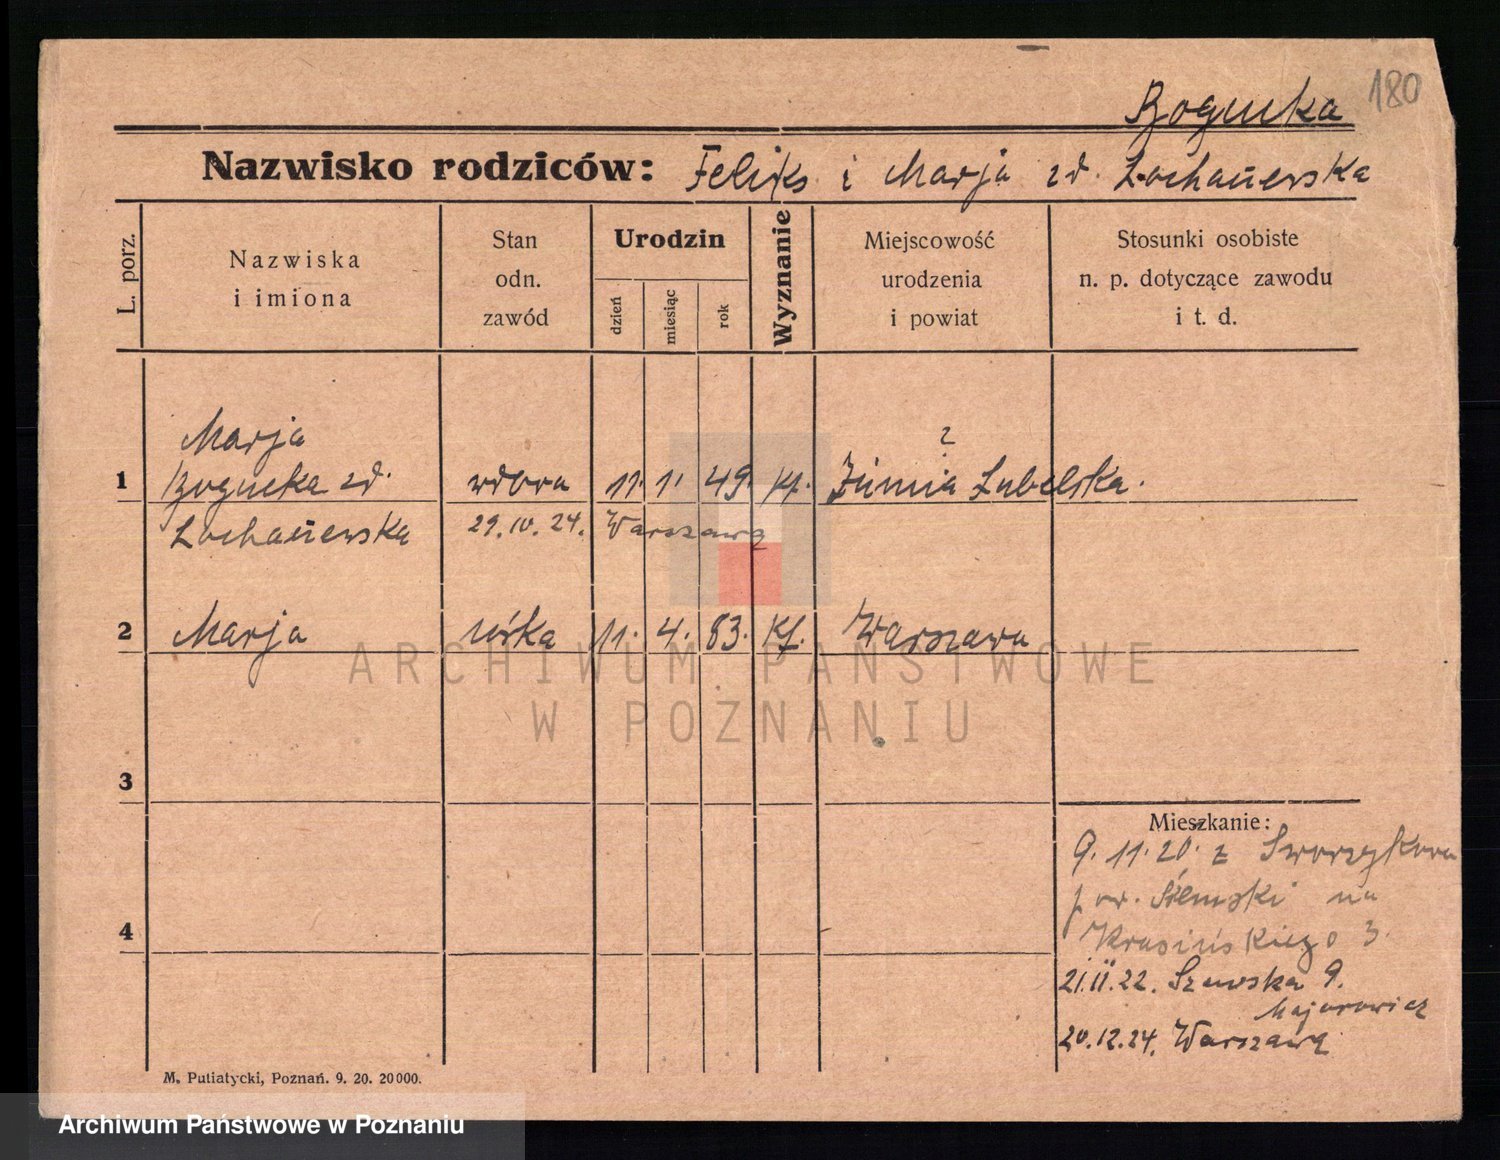 180
Bogucka
Nazwisko rodziców: Feliks i Marja zd. Łochańewska
L. porz.
Nazwiska
i imiona
Stan
odn.
zawód
Urodzin
dzień
miesiąc
rok
Wyznanie
Miejscowość
urodzenia
i powiat
Stosunki osobiste
n. p. dotyczące zawodu
i t. d.
Marja
1 Bogucka zd. wdowa 11. 1. 49. Kt. Lubelska.
Łochańewska 29. 10. 24. Warszawa
2 Marja córka 11. 4. 83. Kt. Warszawa
3
4
Mieszkanie:
9. 11. 20. z
pow. na
Krasińskiego 3.
21. II. 22. Szewska 9.
Majorowicz
20. 12. 24. Warszawa
M. Putiatycki, Poznań. 9. 20. 20000.
ARCHIWUM PAŃSTWOWE
W POZNANIU
Archiwum Państwowe w Poznaniu